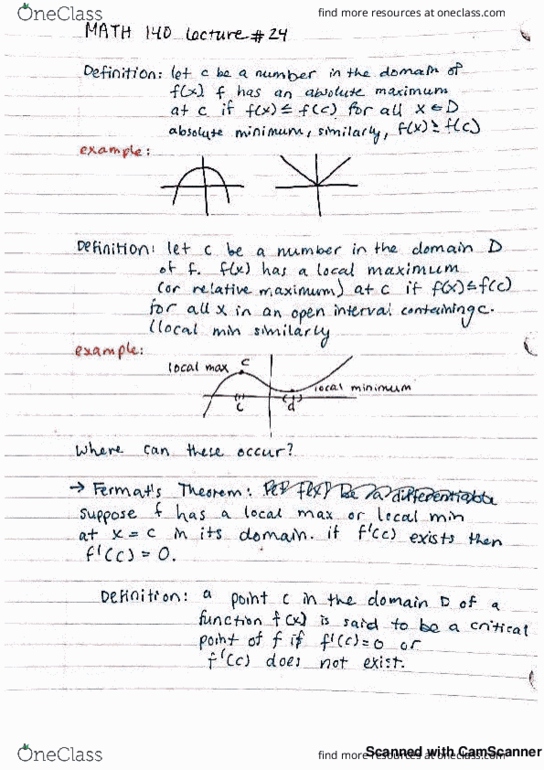 OneClass
find more resources at oneclass.com
MATH 140 Lecture #24
Definition: let c be a number in the domain of
f(x) f has an absolute maximum
at c if f(x) ≤ f(c) for all x ∈ D
absolute minimum, similarly, f(x) ≥ f(c)
example:
Definition: let c be a number in the domain D
of f. f(x) has a local maximum
(or relative maximum) at c if f(x) ≤ f(c)
for all x in an open interval containing c.
(local min similarly
example:
local max c
local minimum
c d
Where can these occur?
→ Fermat's Theorem: Let f(x) be a differentiable
suppose f has a local max or local min
at x = c in its domain. if f'(c) exists then
f'(c) = 0.
Definition: a point c in the domain D of a
function f(x) is said to be a critical
point of f if f'(c) = 0 or
f'(c) does not exist.
OneClass
find more resources at oneclass.com
Scanned with CamScanner